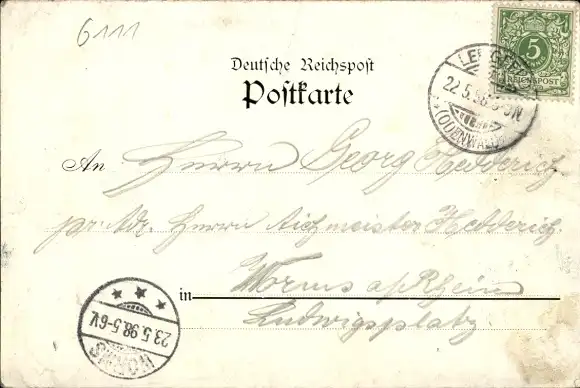 6111
Deutsche Reichspost
Postkarte
5
REICHSPOST
22.5.98
(ODENWALD)
An Herrn Georg Hedderich
pr. Adr. Herrn Aichmeister Hedderich
in Worms a/Rhein
Ludwigsplatz.
WORMS
23.5.98.5-6V.